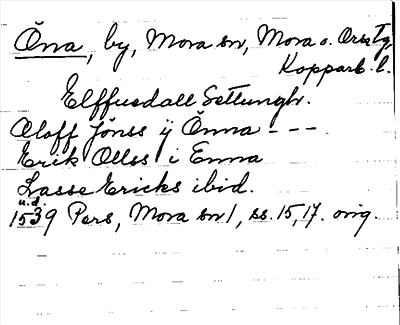 Öna, by, Mora sn, Mora o. Orsa Tg,
Kopparb. l.
Elffuedall Settungh.
Oloff Jönss ÿ Önna - - -
Erik Ollss i Enna
Lasse Ericks ibid.
u.d.
1539 Pers, Mora sn 1, ss. 15, 17. orig.